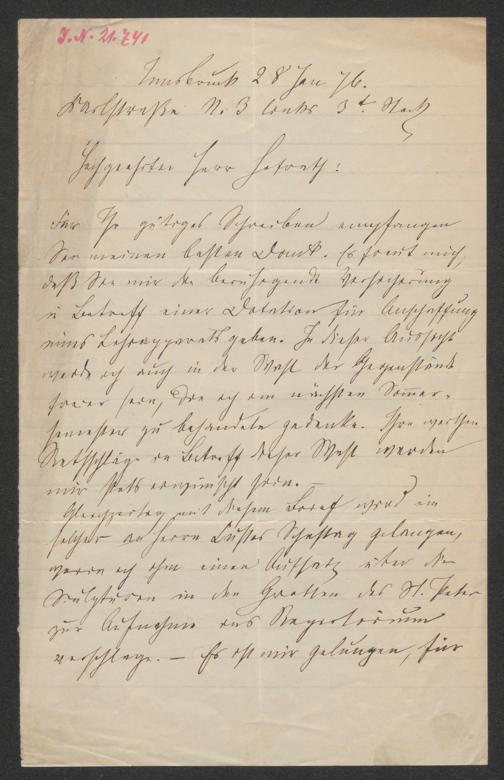 J. N. 21.741
Innsbruck 28 Jan 76.
Karlstraße N. 3 links 3t. Stock
Hochgeehrter Herr Hofrath!
Für Ihr gütiges Schreiben empfangen
Sie meinen besten Dank. Es freut mich,
daß Sie mir die beruhigende Versicherung
in Betreff einer Dotation für Anschaffung
eines Lehrapparats geben. In dieser Aussicht
werde ich auch in der Wahl der Gegenstände
freier sein, die ich im nächsten Sommer-
semester zu behandeln gedenke. Ihre werthen
Rathschläge in Betreff dieser Wahl werden
mir stets erwünscht sein. —
Gleichzeitig mit diesem Brief wird ein
solcher an Herrn Custos Schestag gelangen,
worin ich ihm einen Aufsatz über die
Sculpturen in den Grotten des St. Peter
zur Aufnahme ins Repertorium
vorschlage. — Es ist mir gelungen, für